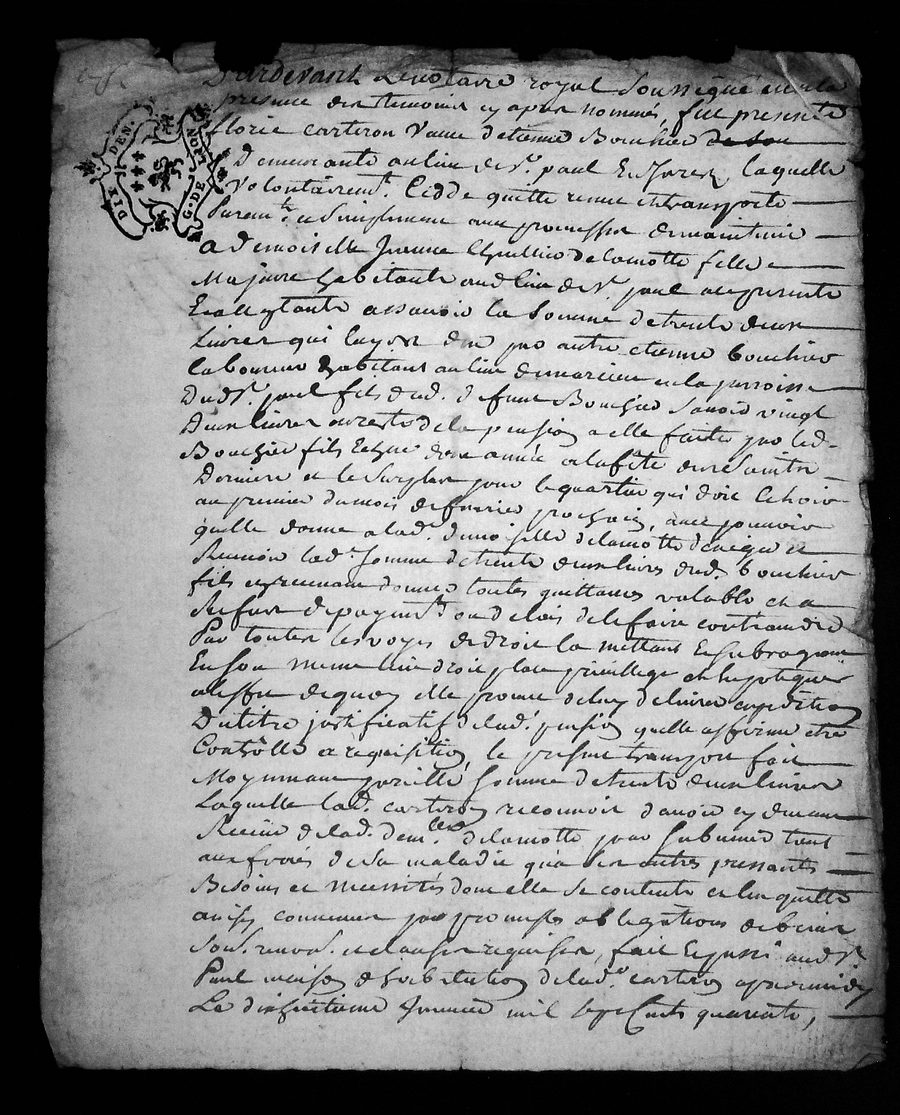 DIX DEN.
G. DE LION
Pardevant Le notaire royal Soussigné en la
presence des temoins cy apres nommés, fut presente
florie carteron veuve d'etienne Bouchier de son
Demeurante au lieu de St. paul En Jarest, laquelle
Volontairemt. Cedde quitte remet et transporte
puremt. et Simplement avec promesse de maintenir
a demoiselle Jeanne de lamotte fille
Majeure habitante aud lieu de St. paul icy presente
Et acceptante assavoir la Somme de trente deux
Livres qui luy est due par autre etienne bouchier
laboureur habitant au lieu de en la parroisse
Dudt. St. paul fils dud. defunt Bouchier Savoir vingt
Deux livres au reste de la pension a elle faitte par led.
Bouchier fils annee a la fête de
Derniere et le Surplus pour le quartier qui doit echoir
au premier du mois de fevrier prochain, avec pouvoir
quelle donne a lad. demoiselle delamotte d'exiger et
Recevoir lad. Somme de trente deux livres dud. bouchier
fils en recevant donner toutes quittances valable et a
Refus de payemt. ou delais de le faire contraindre
Par toutes les voyes de droit la mettant Et Subrogeant
En Son meme lieu droit place privillege et hypoteque
a leffet de quoy elle promet de luy delivrer expedition
Du titre justificatif de lad. pension quelle afferme etre
Controllé a requisition, le present transport fait
Moyennant pareille Somme de trente deux livres
Laquelle lad. carteron reconnoit d'avoir cy devant
Receüe de lad. demlle. delamotte pour Subvenir tant
aux frais de Sa maladie qua Ses autres pressants
Besoins et necessités dont elle Se contente et l'en quitte
ainsy convenu par promesses obligations de biens
Sous. renon. et clauses requises, fait Et passé aud St.
Paul maison d'habitation de lad. carteron apres midy
Le dixhuitieme Janvier mil Sept Cents quarante,